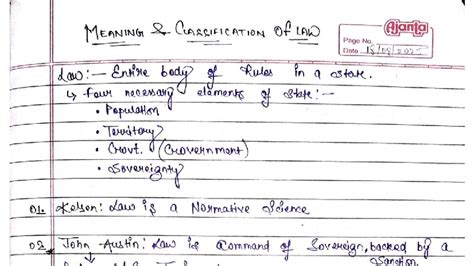 MEANING & CLASSIFICATION OF LAW
Ajanta
Page No.
Date
Law:— Entire body of Rules in a state.
↳ Four necessary elements of State:—
• Population
• Territory
• Govt. (Government)
• Sovereignty
01. Kelsen: Law is a Normative Science
02. John Austin: Law is Command of Sovereign, backed by a
Sanction